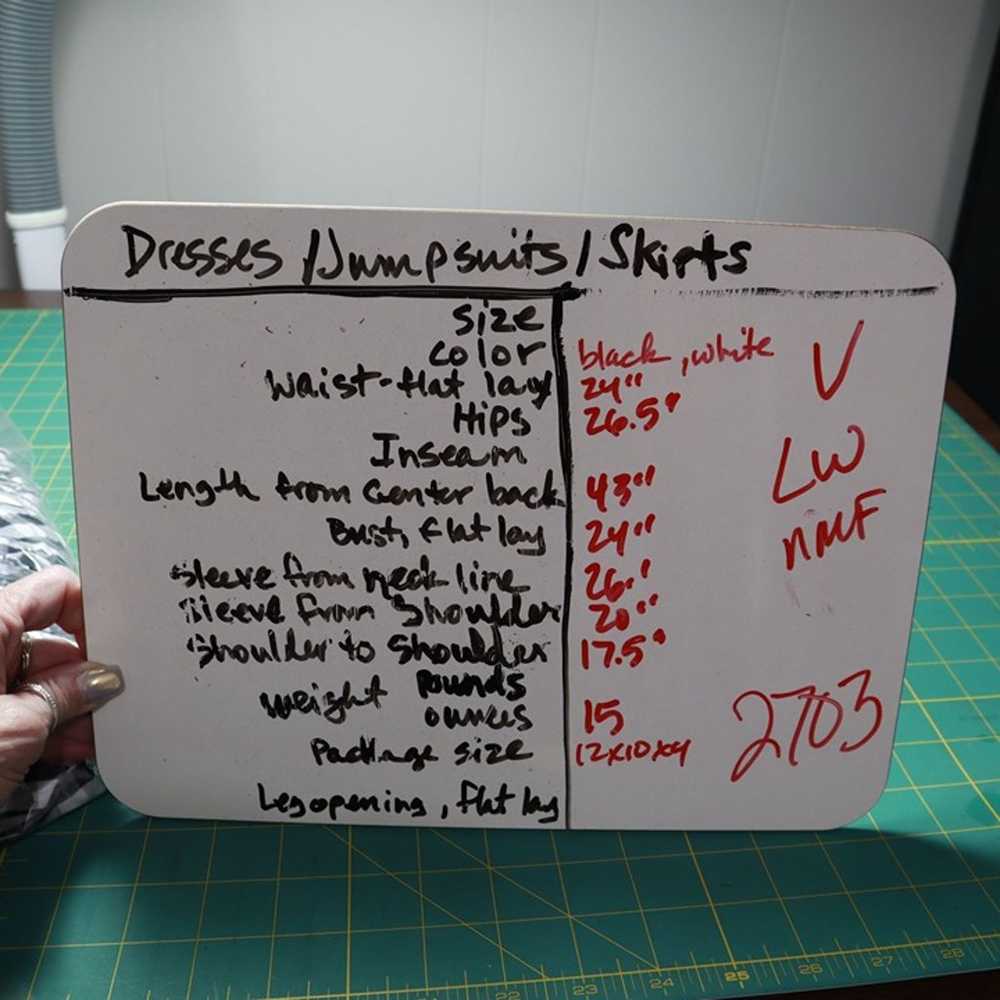 Dresses / Jumpsuits / Skirts
size
color black, white V
Waist-flat lay 24"
Hips 26.5"
Inseam LW
Length from Center back 43"
Bust, flat lay 24" NMF
Sleeve from neck line 26"
Sleeve from Shoulder 20"
Shoulder to Shoulder 17.5"
weight pounds
ounces 15 2703
Package size 12x10x4
Leg opening, flat lay
22 23 24 25 26 27 28